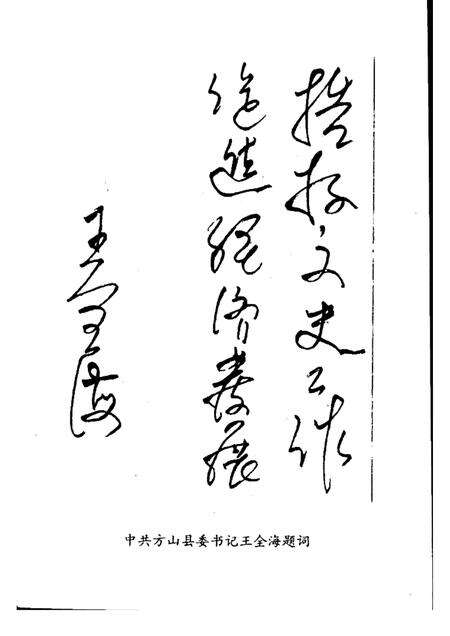 搞好文史工作
促進經济發展
王全海
中共方山县委书记王全海题词